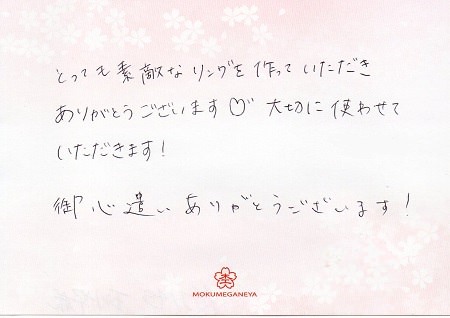 とっても素敵なリングを作っていただき
ありがとうございます♡ 大切に使わせて
いただきます!
御心遣いありがとうございます!
MOKUMEGANEYA